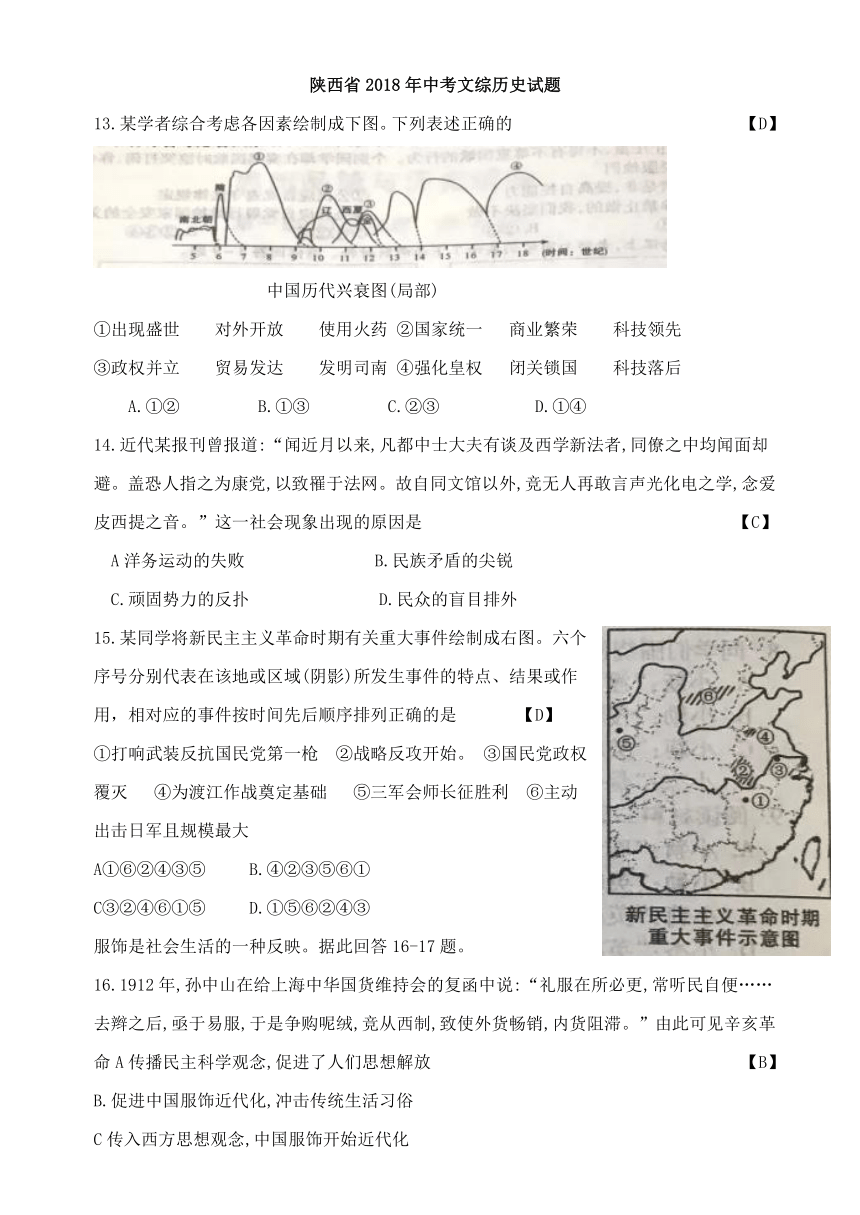 陕西省 2018 年中考文综历史试题
13.某学者综合考虑各因素绘制成下图。下列表述正确的 【D】
① ② ③ ④
隋 辽 西夏 金
南北朝
5 6 7 8 9 10 11 12 13 14 15 16 17 18 (时间：世纪)
中国历代兴衰图(局部)
①出现盛世 对外开放 使用火药 ②国家统一 商业繁荣 科技领先
③政权并立 贸易发达 发明司南 ④强化皇权 闭关锁国 科技落后
A.①② B.①③ C.②③ D.①④
14.近代某报刊曾报道:“闻近月以来,凡都中士大夫有谈及西学新法者,同僚之中均闻面却
避。盖恐人指之为康党,以致罹于法网。故自同文馆以外,竞无人再敢言声光化电之学,念爱
皮西提之音。”这一社会现象出现的原因是 【C】
A洋务运动的失败 B.民族矛盾的尖锐
C.顽固势力的反扑 D.民众的盲目排外
15.某同学将新民主主义革命时期有关重大事件绘制成右图。六个
序号分别代表在该地或区域(阴影)所发生事件的特点、结果或作
用，相对应的事件按时间先后顺序排列正确的是 【D】
①打响武装反抗国民党第一枪 ②战略反攻开始。 ③国民党政权
覆灭 ④为渡江作战奠定基础 ⑤三军会师长征胜利 ⑥主动
出击日军且规模最大
A①⑥②④③⑤ B.④②③⑤⑥①
C③②④⑥①⑤ D.①⑤⑥②④③
⑥
⑤ ④
② ③
①
新民主主义革命时期
重大事件示意图
服饰是社会生活的一种反映。据此回答 16-17 题。
16.1912 年,孙中山在给上海中华国货维持会的复函中说:“礼服在所必更,常听民自便……
去辫之后,亟于易服,于是争购呢绒,竞从西制,致使外货畅销,内货阻滞。”由此可见辛亥革
命 A 传播民主科学观念,促进了人们思想解放 【B】
B.促进中国服饰近代化,冲击传统生活习俗
C 传入西方思想观念,中国服饰开始近代化